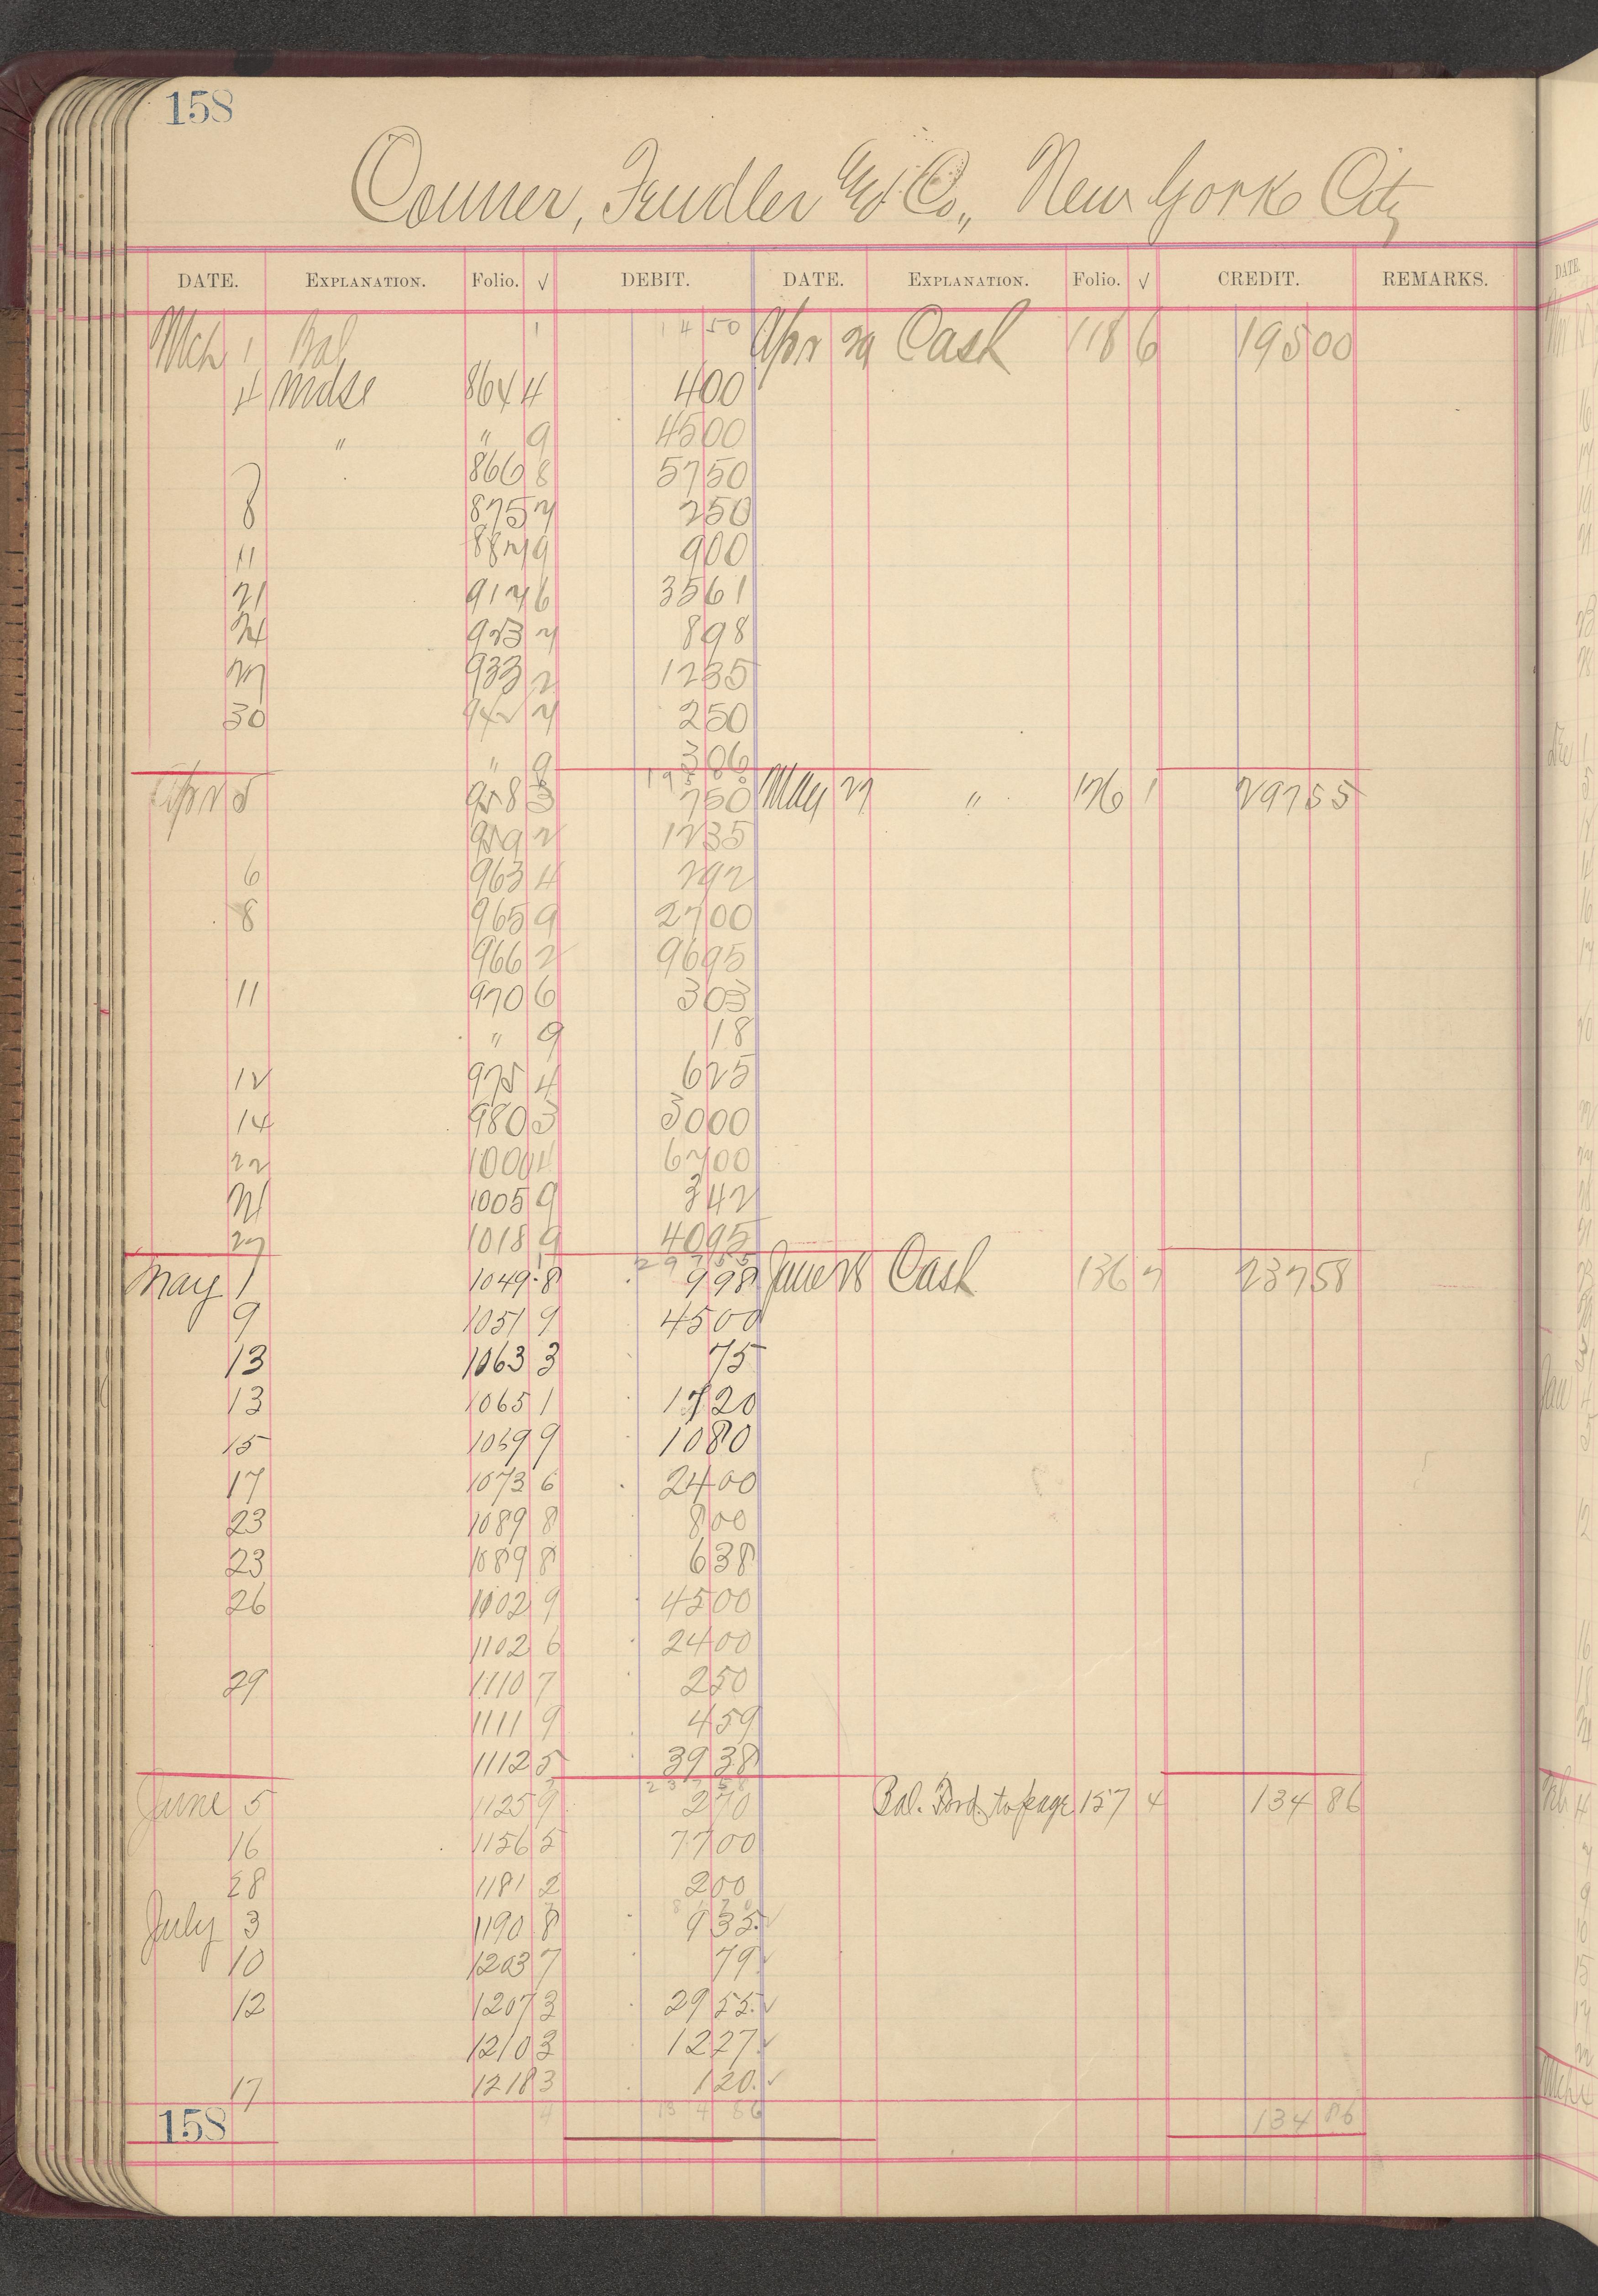 158
Conner, Fendler & Co., New York City
DATE. EXPLANATION. Folio. √ DEBIT. DATE. EXPLANATION. Folio. √ CREDIT. REMARKS.
Mch 1 Bal 1 14 50 Apr 29 Cash 118 6 195 00
4 Mdse 864 4 4 00
" " 9 45 00
866 8 57 50
8 875 7 2 50
11 887 9 9 00
21 917 6 35 61
24 923 7 8 98
27 933 2 12 35
30 942 7 2 50
" 9 3 06
Apr 5 958 3 7 50 May 27 " 126 1 297 55
959 2 12 35
6 963 4 2 92
8 965 9 27 00
966 2 96 95
11 970 6 3 03
" 9 18
12 975 4 6 25
14 980 3 30 00
22 1000 4 67 00
24 1005 9 3 42
27 1018 9 40 95
297 55
May 1 1049 8 9 98 June 28 Cash 136 7 237 58
9 1051 9 45 00
13 1063 3 75
13 1065 1 17 20
15 1069 9 10 80
17 1073 6 24 00
23 1089 8 8 00
23 1089 8 6 38
26 1102 9 45 00
1102 6 24 00
29 1110 7 2 50
1111 9 4 59
1112 5 39 38
237 58
June 5 1125 9 2 70 Bal. Ford. to page 157 4 134 86
16 1156 5 77 00
28 1181 2 2 00
July 3 1190 8 9 35 ✓
10 1203 7 79 ✓
12 1207 3 29 55 ✓
1210 3 12 27 ✓
17 1218 3 1 20 ✓
158 4 134 86 134 86